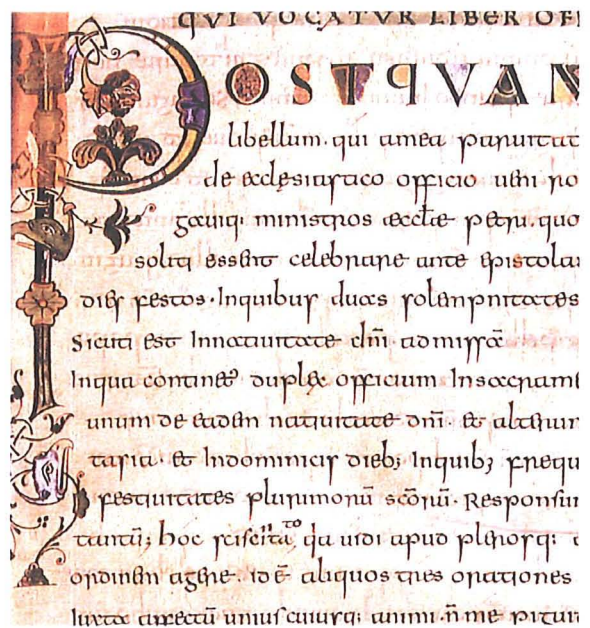 QUI VOCATVR LIBER OFF
POSTQVAM
libellum. qui amea paruitat
de ecclesiastico officio
gauiq; ministros aeccłae petri. quo
soliti essent celebrare ante epistola
dies festos. Inquibus duas solempnitates
Sicuti est Innatiuitate dn̄i. admissā
Inqua continet duplex officium Insacrame
unum de eadem natiuitate dn̄i. et alterum
tasia. et Indominicis dieb; Inquib; frequ
festiuitates plurimorū scōrū. Responsum
tantū; hoc sciscitato, qa uidi apud plerosq;
ordinem agere. id ē aliquos tres orationes
Iuxta affectū uniuscuiusq; animi. n̄ me